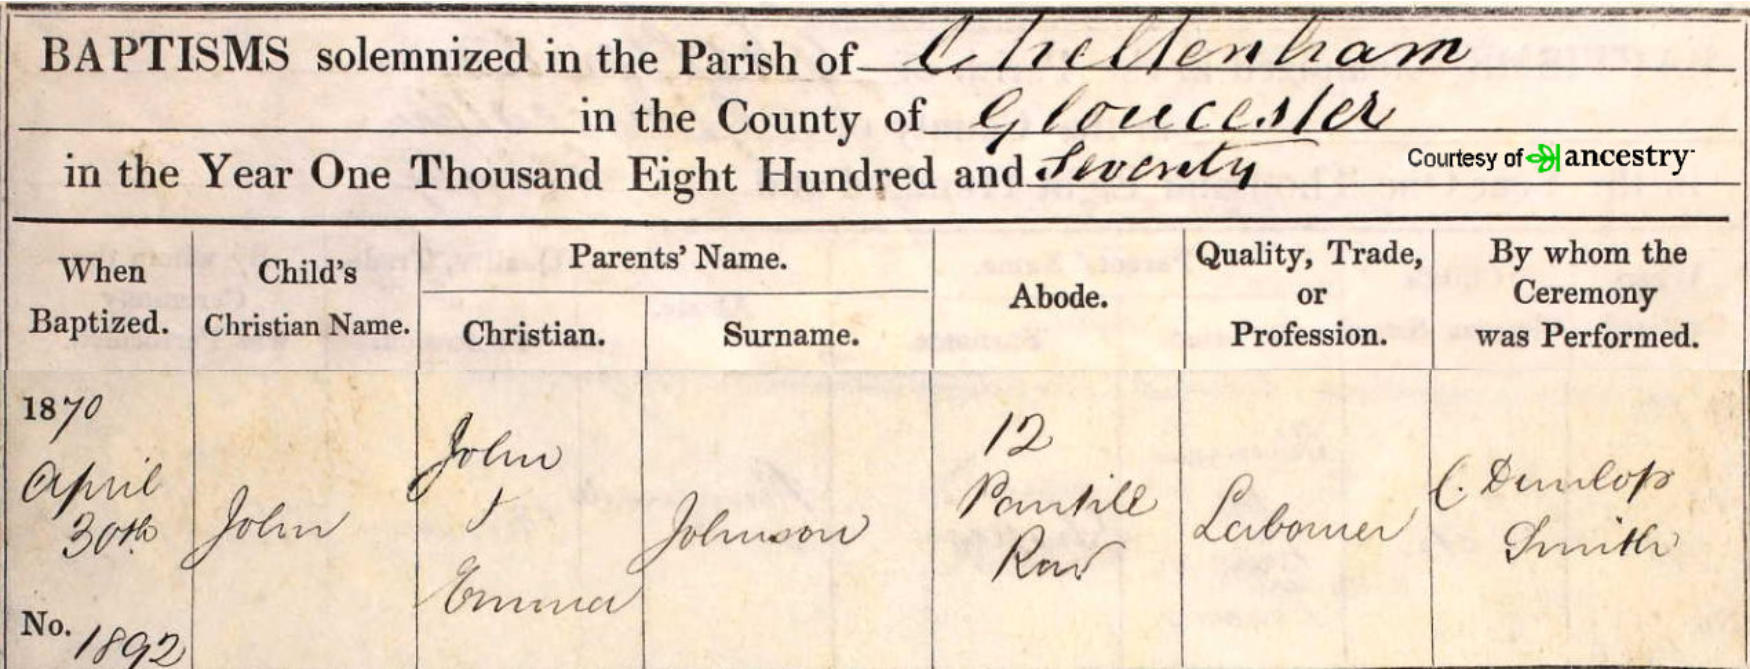 BAPTISMS solemnized in the Parish of Cheltenham
in the County of Gloucester
in the Year One Thousand Eight Hundred and Seventy
Courtesy of ancestry
When Baptized.
Child's Christian Name.
Parents' Name.
Christian.
Surname.
Abode.
Quality, Trade, or Profession.
By whom the Ceremony was Performed.
1870
April
30th
No. 1892
John
John
&
Emma
Johnson
12
Pantile
Row
Labourer
C. Dunlop
Smith